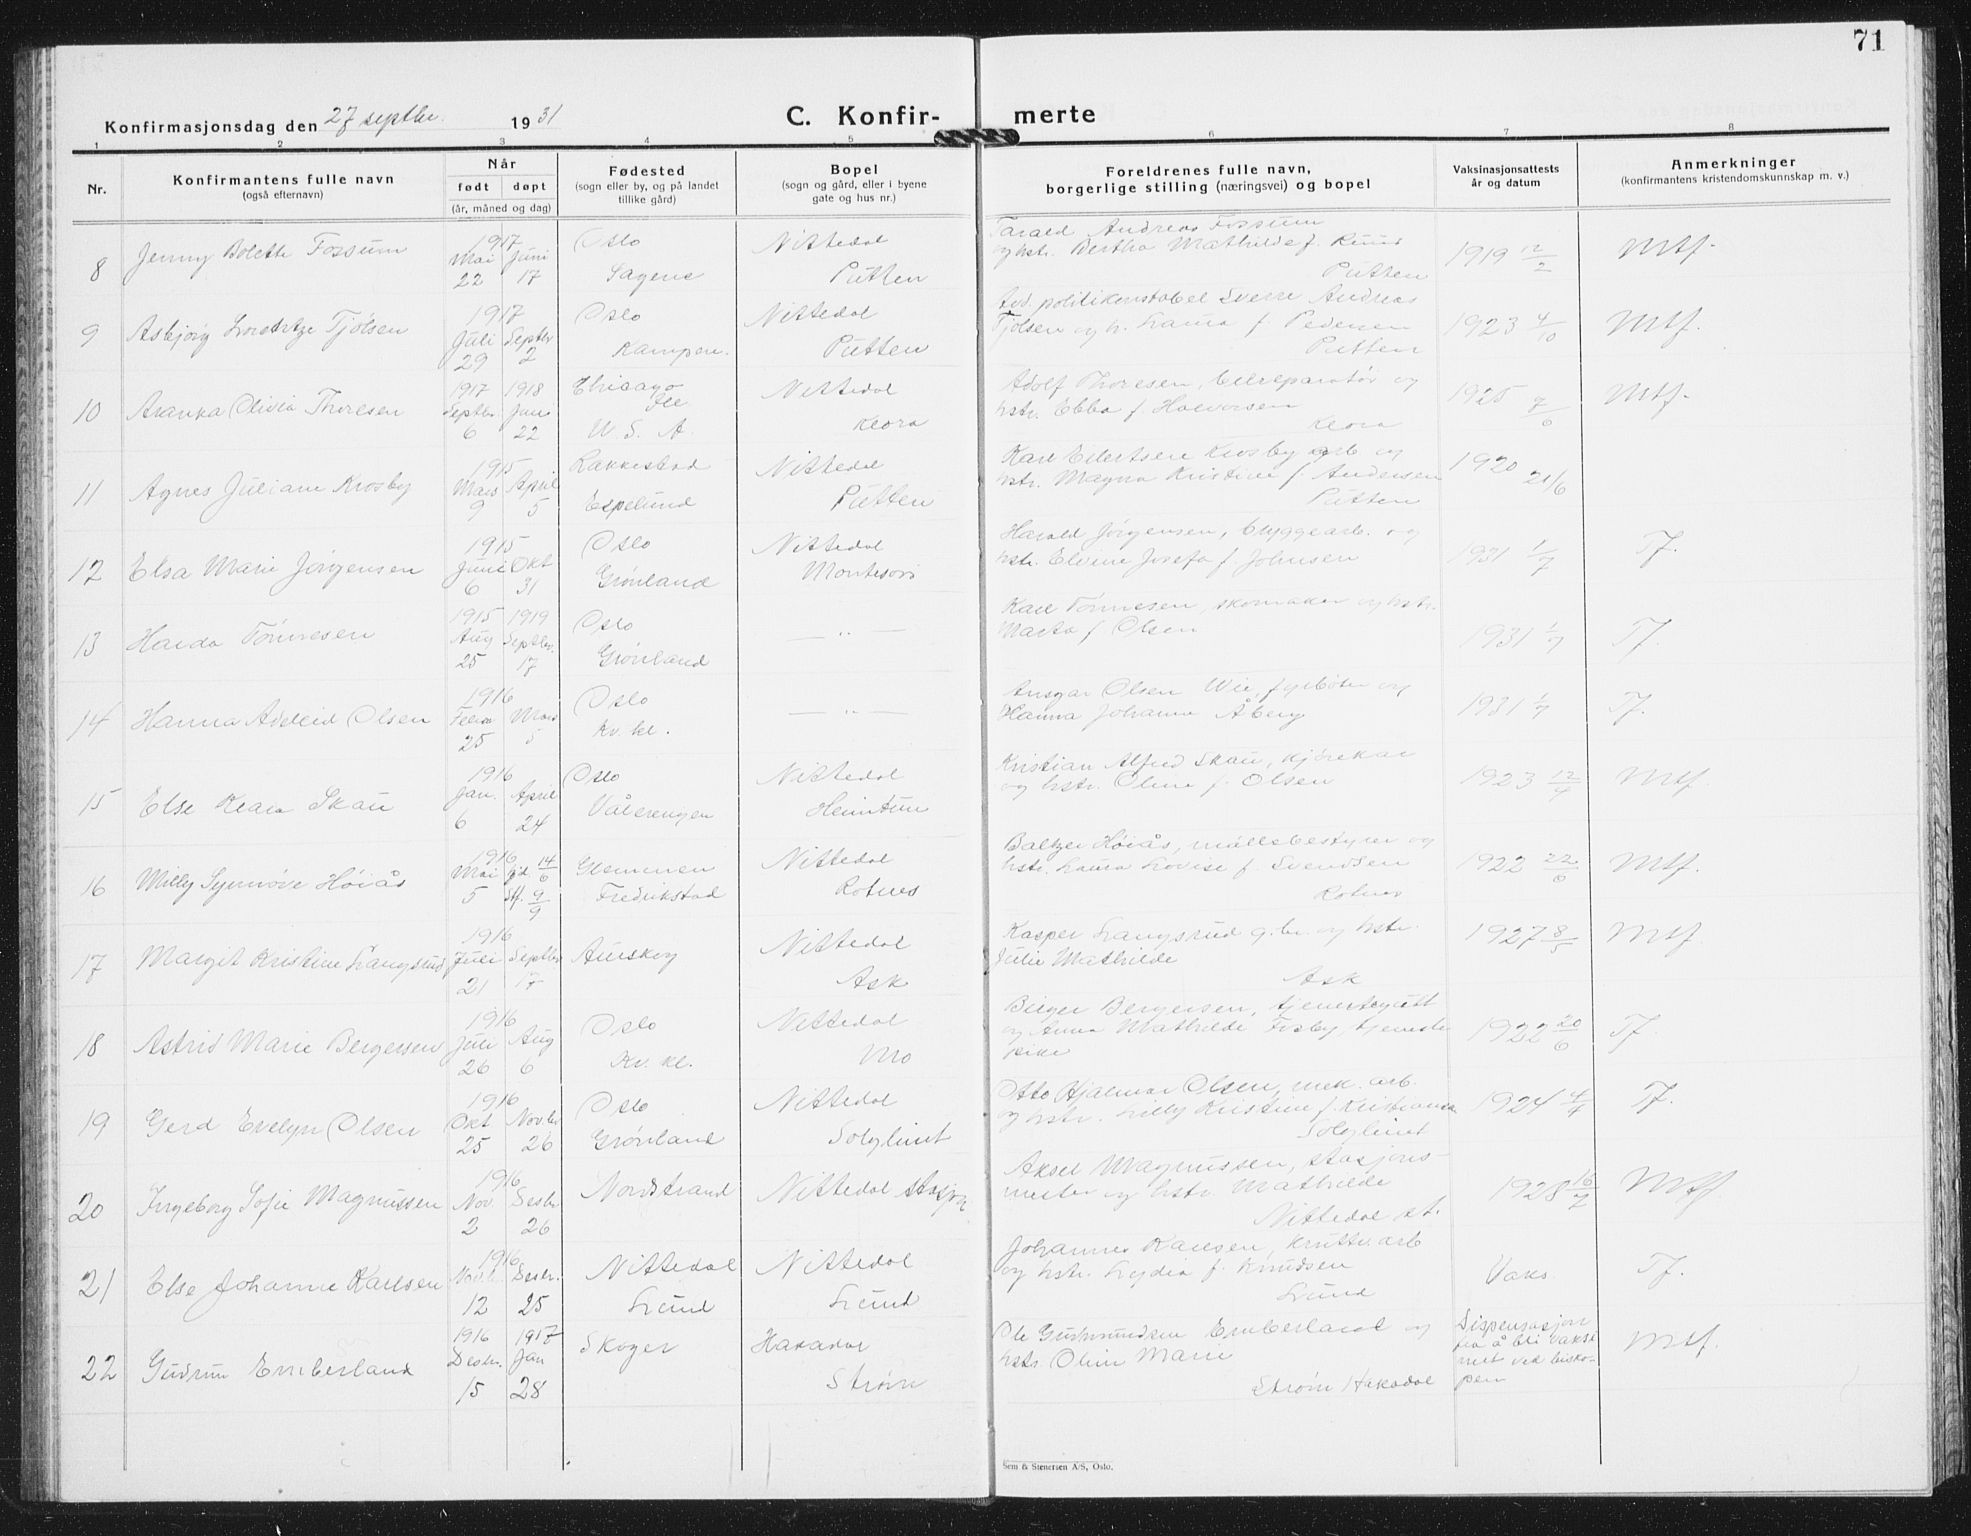 71
Konfirmasjonsdag den 27 septbr. 1931
C. Konfir- merte
1 2 3 4 5 6 7 8
Nr.
Konfirmantens fulle navn
(også efternavn)
Når
født døpt
(år, måned og dag)
Fødested
(sogn eller by, og på landet
tillike gård)
Bopel
(sogn og gård, eller i byene
gate og hus nr.)
Foreldrenes fulle navn,
borgerlige stilling (næringsvei) og bopel
Vaksinasjonsattests
år og datum
Anmerkninger
(konfirmantens kristendomskunnskap m. v.)
8 Jenny Bolette Fossum
1917
Mai Juni
22 17
Oslo
Sagene
Nittedal
Putten
Tarald Andreas Fossum
og hstr. Bertha Mathilde f. Ruud
Putten
1919 12/2
Mtf.
9 Asbjørg Tjølsen
1917
Juli Septbr
29 2
Oslo
Kampen.
Nittedal
Putten
politikonstabel Sverre Andreas
Tjølsen og h. Laura f. Pedersen
Putten
1923 4/10
Mtf.
10 Aranka Olivia Thoresen
1917 1918
Septbr. Jan
6 22
Chicago
Ill
U. S. A.
Nittedal
Klora
Adolf Thoresen, bilreparatør og
hstr. Ebba f. Halvorsen
Klora
1925 7/6
Mtf.
11 Agnes Juliane Krosby
1915
Mars April
9 5
Rakkestad
Espelund
Nittedal
Putten
Karl Eilertsen Krosby arb og
hstr. Magna Kristine f. Andersen
Putten
1920 21/6
12 Elsa Marie Jørgensen
1915
Juni Okt
6 31
Oslo
Grønland
Nittedal
Montesori
Harald Jørgensen, bryggearb. og
hstr. Elvine Josefa f. Johnsen
1931 1/7
Tf.
13 Harda Tønnesen
1915 1919
Aug Septbr.
25 17
Oslo
Grønland
— „ —
Karl Tønnesen, skomaker og hstr.
Marta f Olsen
1931 1/7
Tf.
14 Hanna Adeleid Olsen
1916
Febr Mars
25 5
Oslo
Kv. kl.
— „ —
Ansgar Olsen Wie, fyrbøter og
Hanna Johanne Åberg
1931 1/7
Tf.
15 Else Klara Skau
1916
Jan. April
6 24
Oslo
Vålerengen
Nittedal
Heimtun
Kristian Alfred Skau, kjørekar
og hstr. Oline f Olsen
1923 12/4
Mtf.
16 Milly Synnøve Høiås
1916
Mai hjd 14/6
5 Stf. 9/9
Glemmen
Fredrikstad
Nittedal
Rotnes
Baltzer Høiås, møllebestyrer og
hstr. Laura Lovise f. Svendsen
Rotnes
1922 22/6
Mtf.
17 Margit Kristine Langsrud
1916
Juli Septbr
21 17
Aurskog
Nittedal
Ask
Kasper Langsrud g.br. og hstr.
Julie Mathilde
Ask
1927 8/5
Mtf.
18 Astrid Marie Bergersen
1916
Juli Aug
26 6
Oslo
Kv. kl.
Nittedal
Mo
Birger Bergersen, tjenestegutt
og Anna Mathilde Fosby, tjeneste
pike
1922 20/6
Tf.
19 Gerd Evelyn Olsen
1916
Okt Novbr
25 26
Oslo
Grønland
Nittedal
Solglimt
Otto Hjalmar Olsen, mek. arb.
og hstr. Lilly Kristine f. Kristiansen
Solglimt
1924 4/4
Tf.
20 Ingeborg Sofie Magnussen
1916
Nov. Desbr.
2 26
Nordstrand
Nittedal stasjon
Aksel Magnussen, stasjons-
mester og hstr. Mathilde
Nittedal st.
1928 16/7
Mtf.
21 Else Johanne Karlsen
1916
Novbr. Desbr.
12 25
Nittedal
Lund
Nittedal
Lund
Johannes Karlsen, kruttv.arb
og hstr. Lydia f. Knudsen
Lund
Vaks.
Tf.
22 Gudrun Emberland
1916 1917
Desbr. Jan
15 28
Skoger
Hakadal
Strøm
Ole Gudmundsen Emberland og
hstr. Oline Marie
Strøm Hakadal
Dispensasjon
fra å bli vaksi
nert ved bisko-
pen
Mtf.
Sem & Stenersen A/S, Oslo.